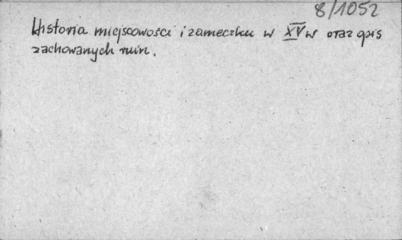 8/1052
Historia miejscowości i zameczku w XV w oraz opis
zachowanych ruin.